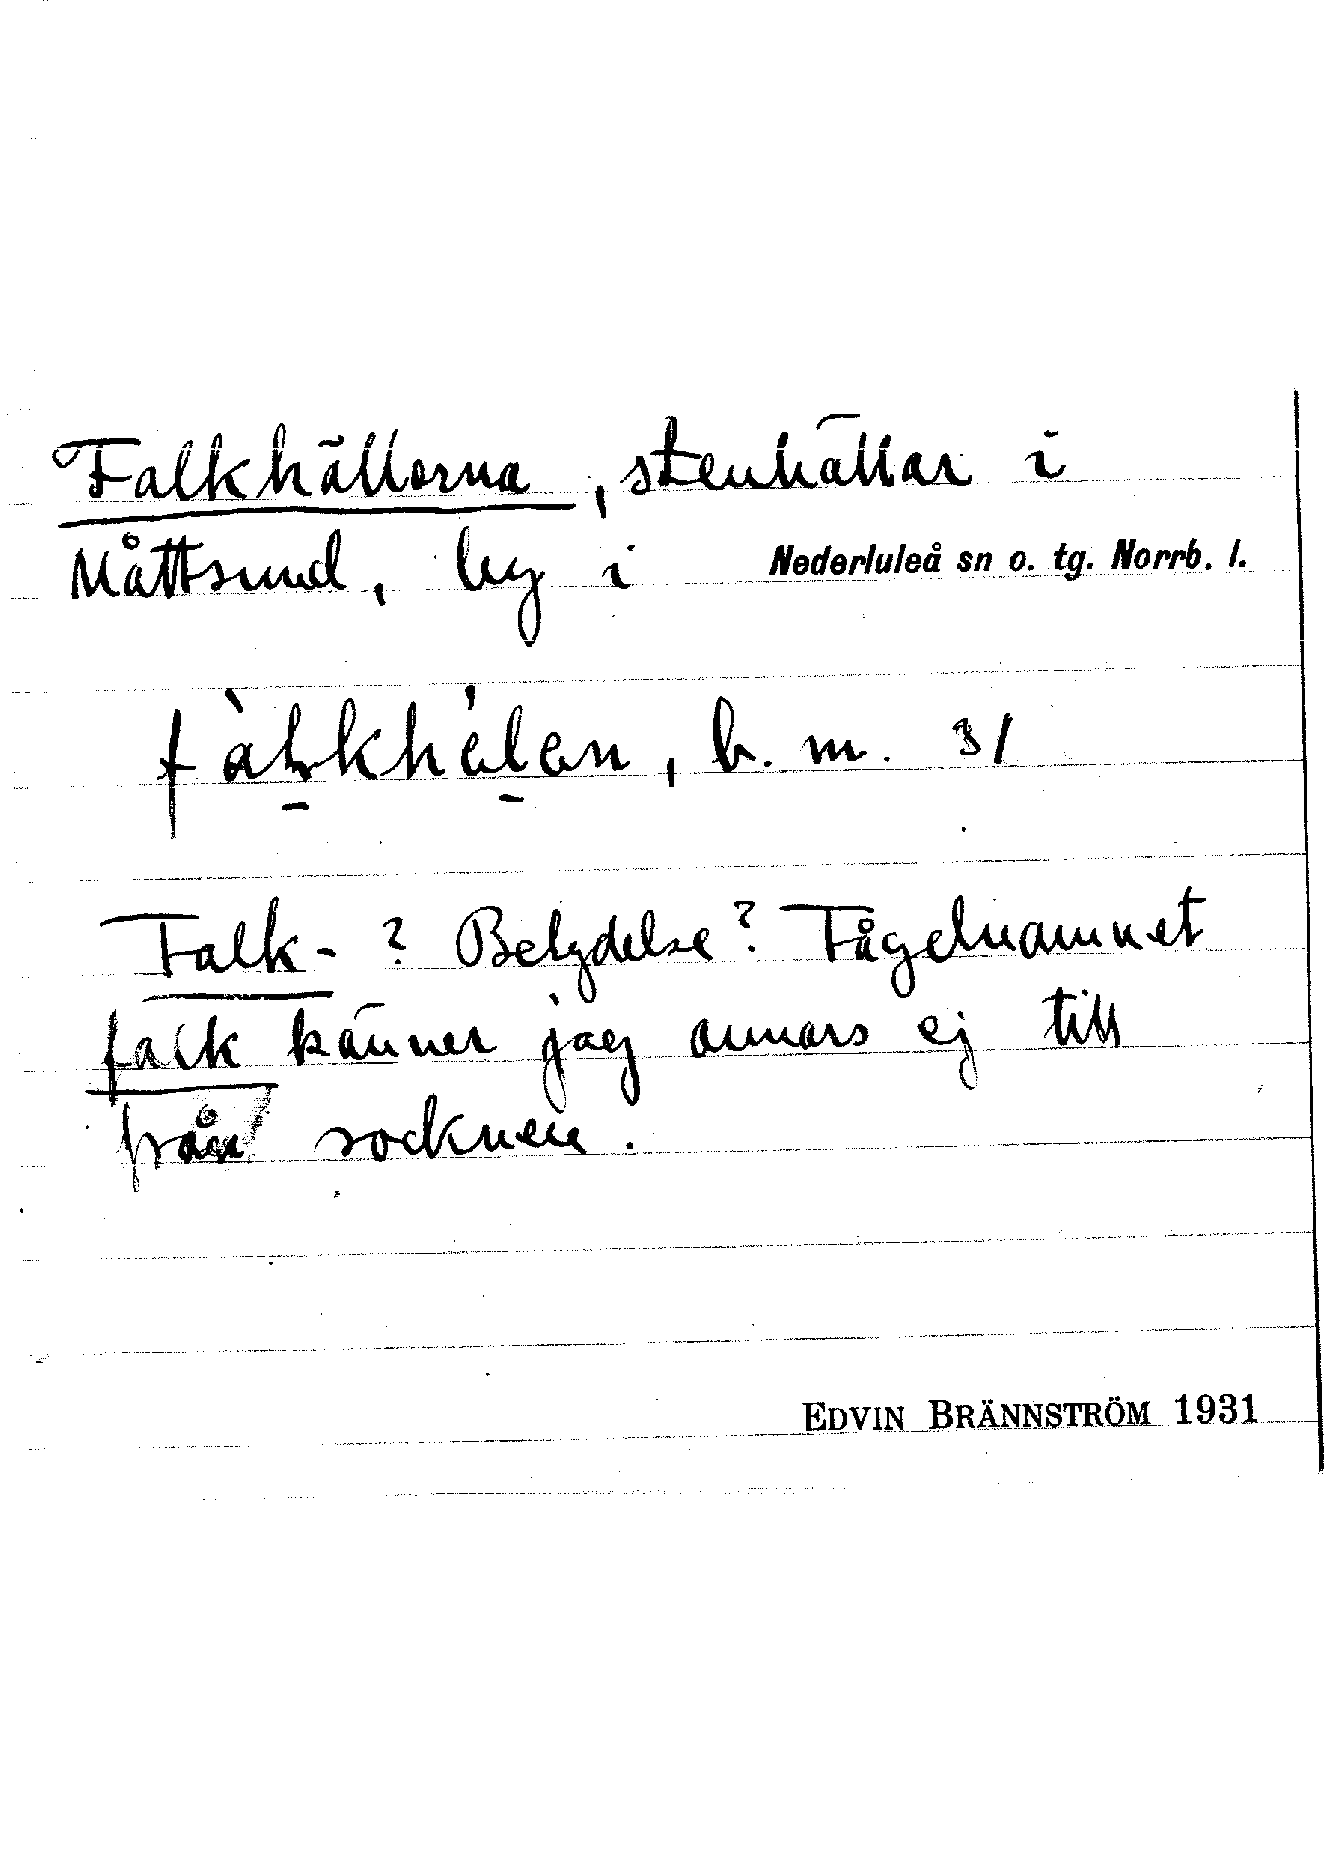 Falkhällorna, stenhällar i
Måttsund, by i Nederluleå sn o. tg. Norrb. l.
b. m. 31
Falk- ? Betydelse? Fågelnamnet
falk känner jag annars ej till
från socknen.
EDVIN BRÄNNSTRÖM 1931